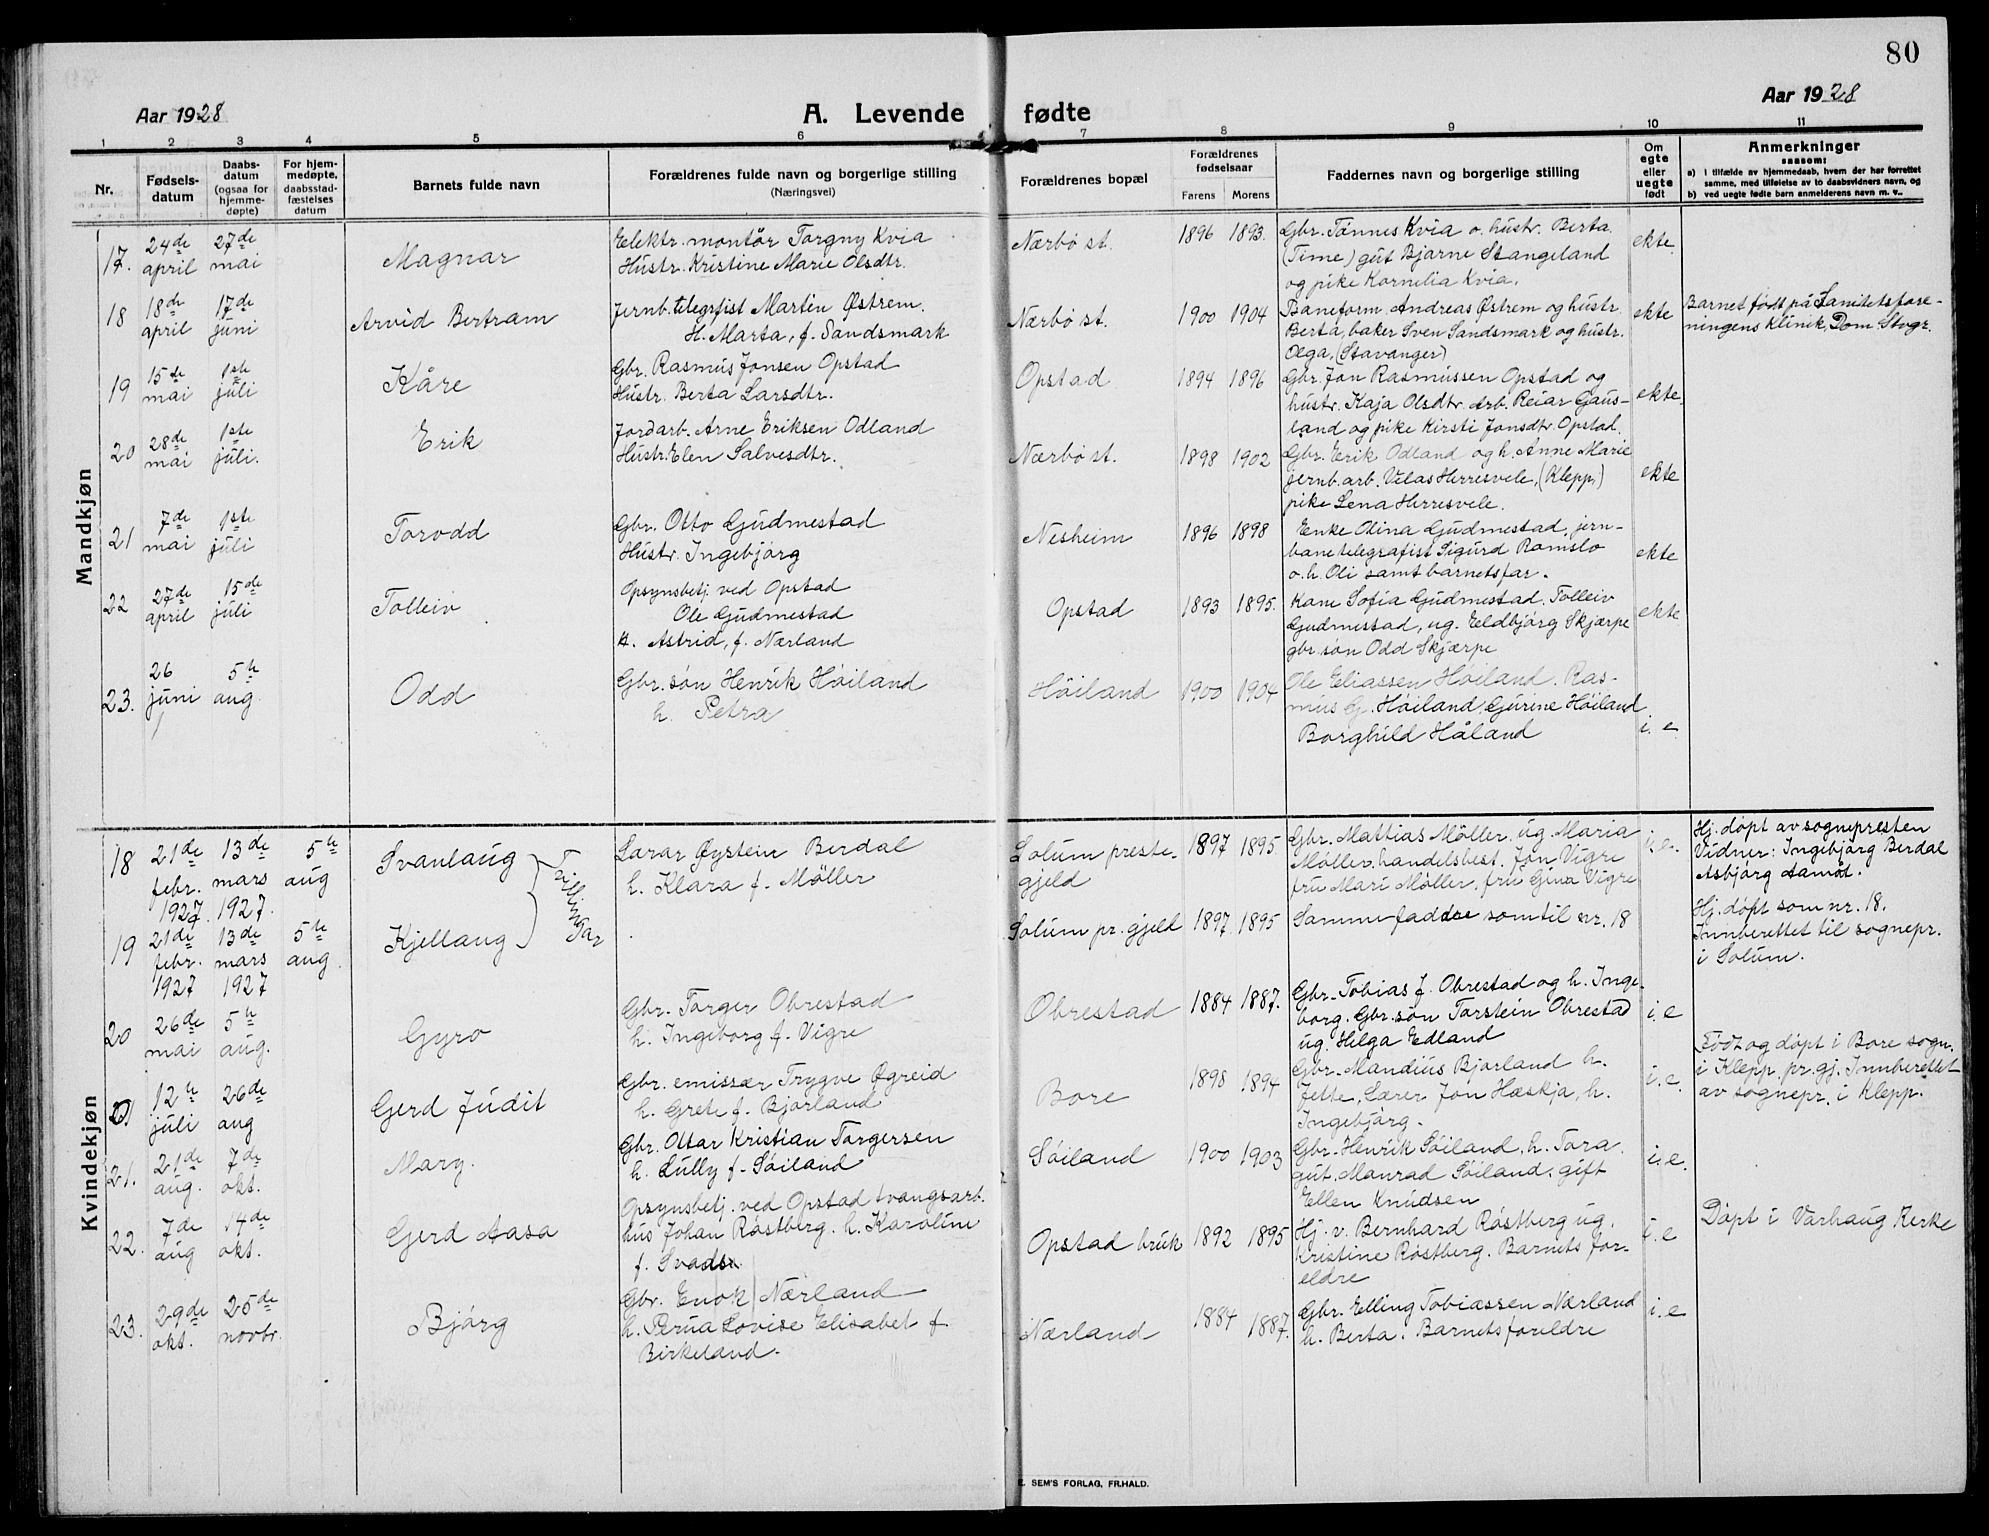 80
Aar 1928
A. Levende fødte
Aar 1928
1 2 3 4 5 6 7 8 9 10 11
Nr.
Fødsels-
datum
Daabs-
datum
(ogsaa for
hjemme-
døpte)
For hjem-
medøpte,
daabsstad-
fæstelses
datum
Barnets fulde navn
Forældrenes fulde navn og borgerlige stilling
(Næringsvei)
Forældrenes bopæl
Forældrenes
fødselsaar
Farens Morens
Faddernes navn og borgerlige stilling
Om
egte
eller
uegte
født
Anmerkninger
saasom:
a) i tilfælde av hjemmedaab, hvem der har forrettet
samme, med tilføielse av to daabsvidners navn, og
b) ved uegte fødte barn anmelderens navn m. v..
Mandkjøn
17. 24de april 27de mai Magnar
Elektr. montør Torgny Kvia
Hustr. Kristine Marie Olsdtr.
Nærbø st. 1896 1893.
Gbr. Tønnes Kvia o. hustr. Berta
(Time) gut Bjarne Stangeland
og pike Kornelia Kvia.
ekte
18 18de april 17de juni Arvid Bertram
Jernb. telegrfist Martin Østrem.
H. Marta, f. Sandsmark
Nærbø st. 1900 1904
Baneform. Andreas Østrem og hustr.
Berta, baker Sven Sandsmark og hustr.
Olga, (Stavanger)
ekte
Barnet født på Sanitetsfore-
ningens Klinik, Dom. Stvgr.
19 15de mai 1ste juli Kåre
Gbr. Rasmus Jonsen Opstad
Hustr. Berta Larsdtr.
Opstad 1894 1896
Gbr. Jon Rasmussen Opstad og
hustr. Kaja Olsdtr. Arb. Reiar Gaus-
land og pike Kirsti Jonsdtr Opstad.
ekte.
20 28de mai 1ste juli. Erik
Jordarb. Arne Eriksen Odland
Hustr. Elen Salvesdtr.
Nærbø st. 1898 1902
Gbr. Erik Odland og h. Anne Marie
jernb. arb. Vilas Herresvele, (Klepp,)
pike Lena Herresvele.
ekte
21 7de mai 1ste juli Torodd
Gbr. Otto Gudmestad
Hustr. Ingebjørg
Nesheim 1896 1898
Enke Olina Gudmestad, jern-
banetelegrafist Sigurd Ramslo
o. h. Oli samt barnets far.
ekte
22 27de april 15de juli Tolleiv
Opsynsbetj. ved Opstad
Ole Gudmestad
H. Astrid, f. Nærland
Opstad 1893 1895.
Kone Sofia Gudmestad. Tolleiv
Gudmestad, ug. Eldbjørg Skjærpe
gbr. søn Odd Skjærpe
ekte
23. 26 juni 5te aug. Odd
Gbr. søn Henrik Høiland
h. Petra
Høiland 1900 1904
Ole Eliassen Høiland. Ras-
mus G. Høiland, Gurine Høiland
Borghild Håland
i. e
Kvindekjøn
18 21de febr. 1927 13de mars 1927. 5te aug Svanlaug
Tvillingar
Lærar Øystein Berdal
h. Klara f. Møller
Solum preste-
gjeld
1897 1895
Gbr. Mattias Møller. ug. Maria
Møller, handelsbest. Jon Vigre
fru Mari Møller, fru Gina Vigre
i. e.
Hj. døpt av sognepresten
Vidner: Ingebjørg Berdal
Asbjørg Aamot.
19 21de febr. 1927 13de mars 1927 5te aug. Kjellaug
Solum pr. gjeld 1897 1895
Samme faddre som til nr. 18
Hj. døpt som nr. 18.
Innberettet til sognepr.
i Solum.
20 26de mai 5te aug. Gyro
Gbr. Torger Obrestad
h. Ingeborg f. Vigre
Obrestad 1884 1887.
Gbr. Tobias J. Obrestad og h. Inge-
borg. Gbr. søn Torstein Obrestad
ug. Helga Edland
i. e
12te juli 26de aug Gerd Judit
Gbr. emissær Trygve Øgreid
h. Grete f. Bjorland
Bore 1898 1894
Gbr. Mandius Bjorland h.
Jette, Lærer Jon Hæskja, h.
Ingebjørg.
i. e.
Født og døpt i Bore sogn,
i Klepp pr. gj. Innberettet
av sognepr. i Klepp.
21. 21de aug. 7de okt. Mary.
Gbr. Ottar Kristian Torgersen
h. Lully f. Søiland
Søiland 1900 1903
Gbr. Henrik Søiland, h. Tora.
gut. Manrad Søiland, gift
Ellen Knudsen
i. e.
22. 7de aug 14de okt. Gerd Aasa
Opsynsbetj. ved Opstad tvangsarb.
hus Johan Røstberg. h. Karoline
f.
Opstad bruk 1892 1895
Hj. v. Bernhard Røstberg ug.
Kristine Røstberg. Barnets for-
eldre
i. e
Døpt i Varhaug Kirke
23. 29de okt. 25de novbr. Bjørg
Gbr. Enok Nærland
h. Lovise Elisabet f
Birkeland.
Nærland 1884 1887.
Gbr. Elling Tobiassen Nærland
h. Berta. Barnets foreldre
i. e
E. SEM'S FORLAG, FR.HALD.